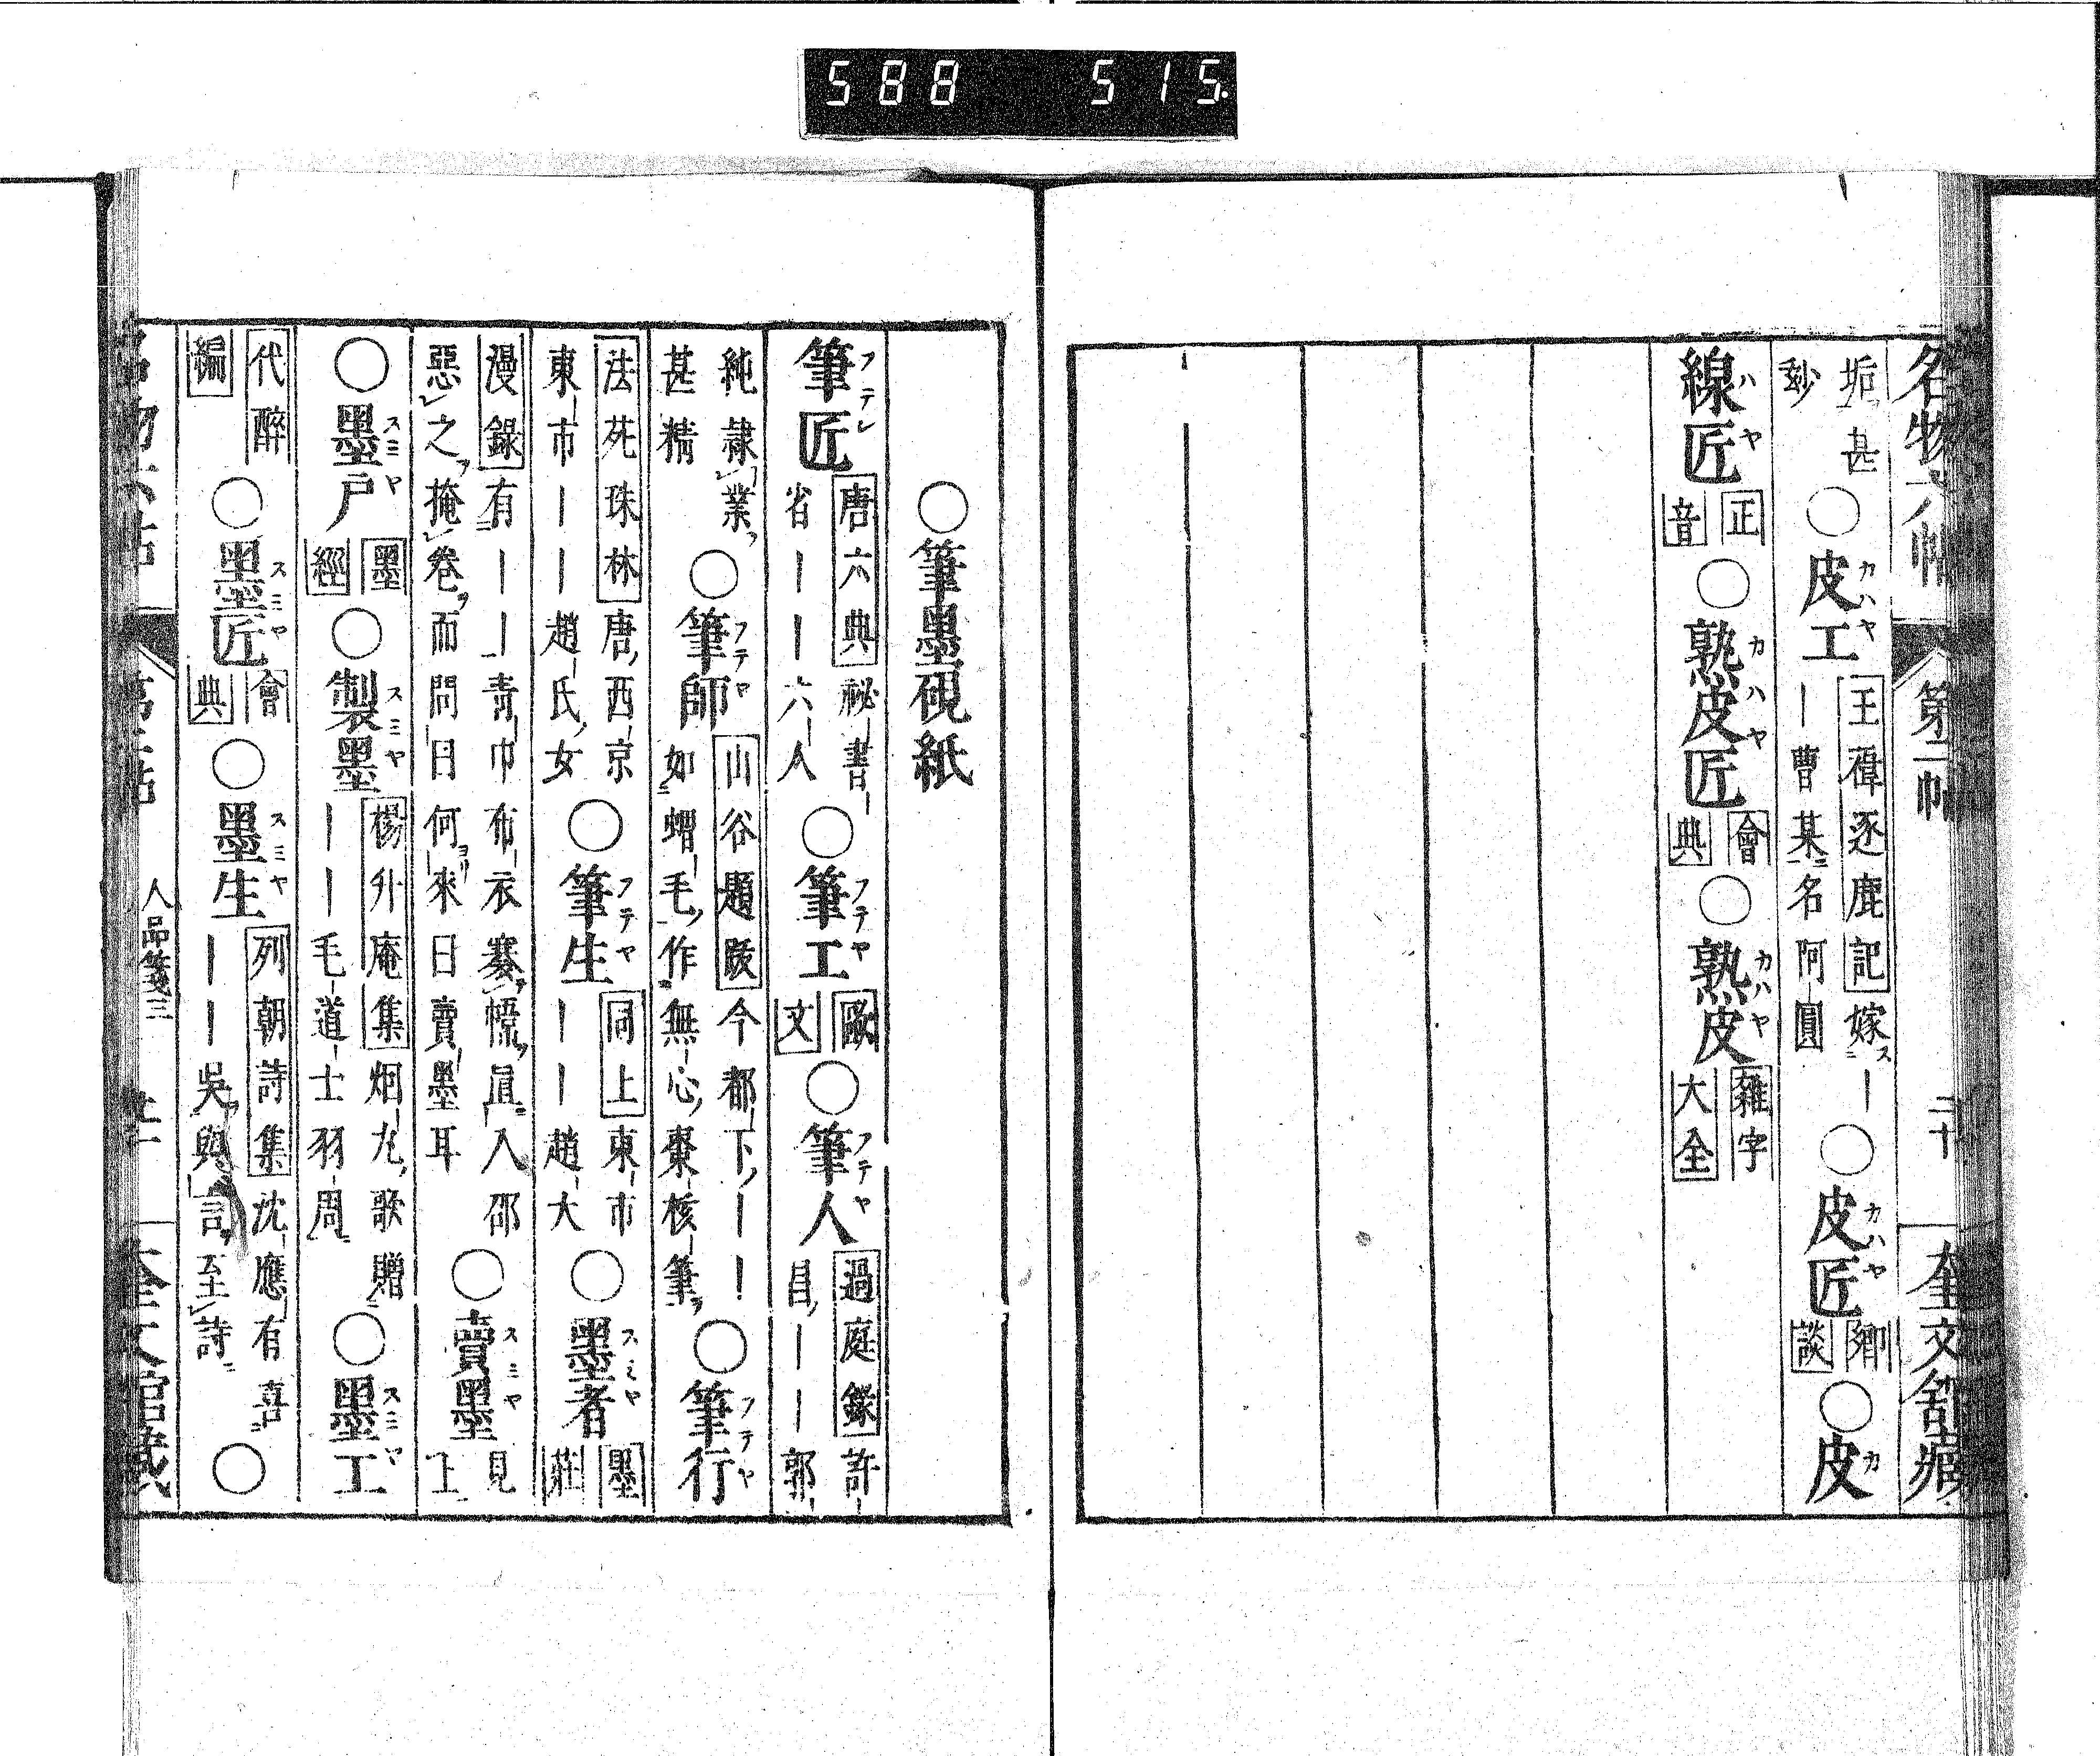 588 515
名物六帖 第二帖 二十 奎文舘藏
垢甚
玅
○皮工 カハヤ
王禕逐鹿記 嫁ス二｜
｜曹某二名阿圓
○皮匠 カハヤ
鄕談
○皮 カ
線匠 ハヤ
正音
○熟皮匠 カハヤ
會典
○熟皮 カハヤ
雜字大全
○筆墨硯紙
筆匠 フテシ
唐六典 祕書
省｜｜六人
○筆工 フテヤ
歐文
○筆人 フテヤ
過庭錄 許
昌｜｜郭
純隷業
甚精
○筆師 フテヤ
山谷題跋 今都下｜｜
如蝟毛作無心棗核筆
○筆行 フテヤ
法苑珠林 唐西京
東市｜｜趙氏女
○筆生 フテヤ
同上 東市
｜｜趙大
○墨者 スミヤ
墨莊
漫錄 有｜｜靑巾布衣搴慌直入邵
惡之掩卷而問曰何來曰賣墨耳
○賣墨 スミヤ
見上
○墨戸 スミヤ
墨經
○製墨 スミヤ
楊外庵集 烟丸歌贈
｜｜毛道士羽周
○墨工 スミヤ
代醉編
○墨匠 スミヤ
會典
○墨生 スミヤ
列朝詩集 沈應有喜
｜｜吳與言至詩
○
人品箋三